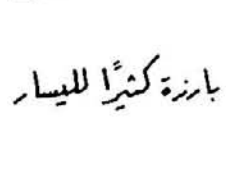 بارزة كثيرًا لليسار